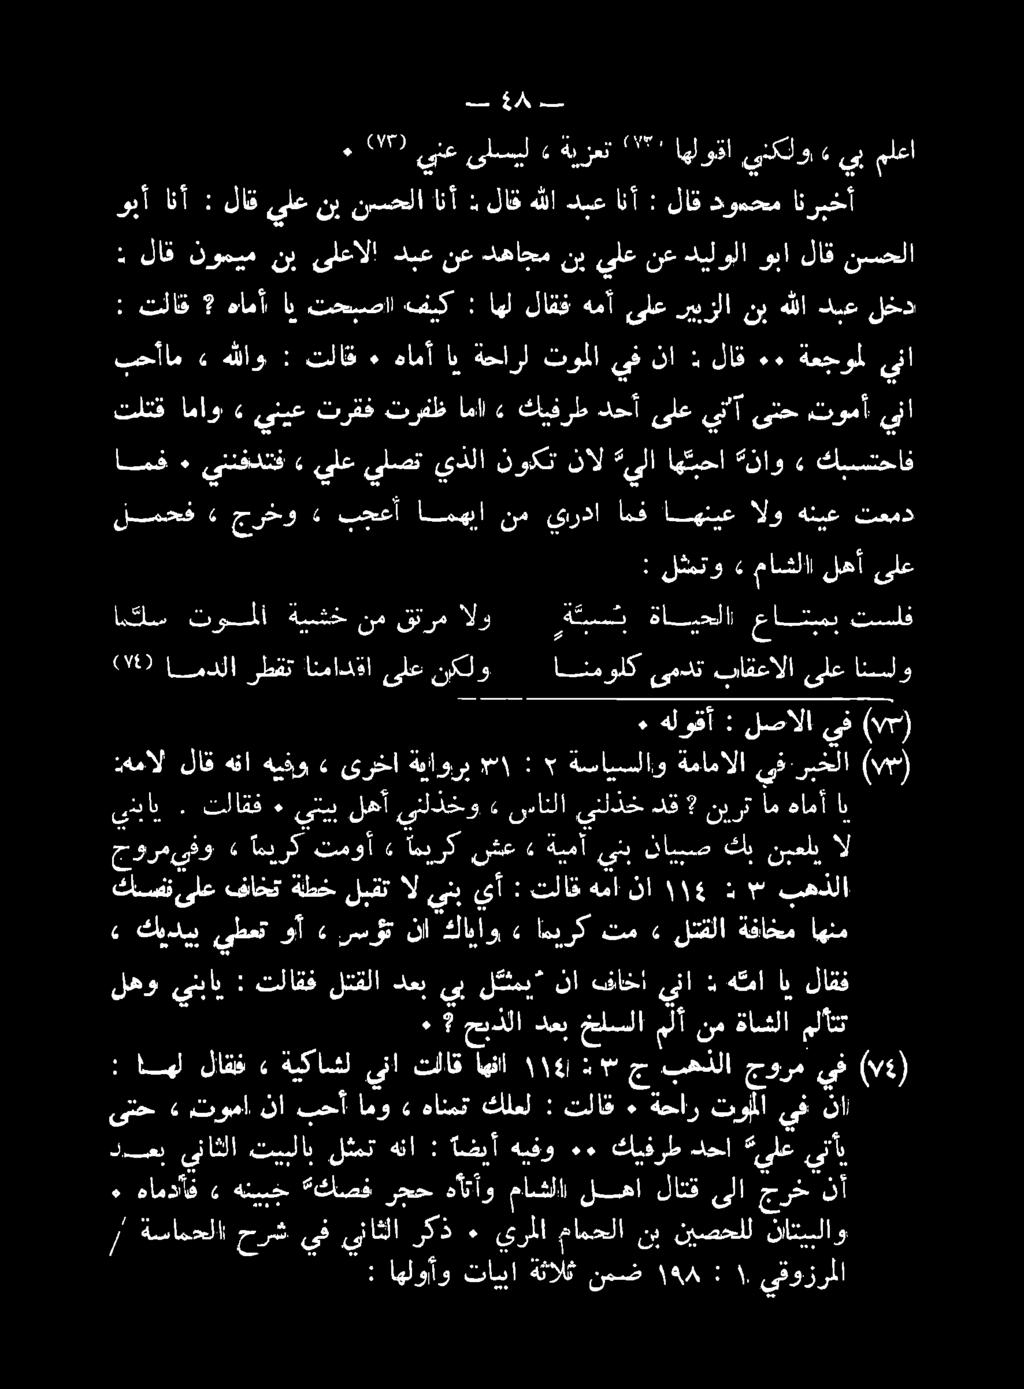 — ٤٨ —
اعلم بي ، ولكني اقولها (٧٢) تعزية ، ليسلى عني (٧٣) ٠
أخبرنا محمود قال : أنا عبد الله قال : أنا الحسن بن علي قال : أنا أبو
الحسن قال ابو الوليد عن علي بن مجاهد عن عبد الاعلى بن ميمون قال :
دخل عبد الله بن الزبير على أمه فقال لها : كيف اصبحت يا أماه ؟ قالت :
اني لموجعة ٠٠ قال : ان في الموت لراحة يا أماه ٠ قالت : والله ، ماأحب
اني أموت حتى آتي على أحد طرفيك ، اما ظفرت فقرت عيني ، واما قتلت
فاحتسبتك ، وانّ احبّها اليّ لان تكون الذي تصلي علي ، فتدفنني ٠ فمـا
دمعت عينه ولا عينهـا فما ادري من ايهمـا أعجب ، وخرج ، فحمـل
على أهل الشام ، وتمثل :
فلست بمبتـاع الحيـاة بُسبـّةٍ ولا مرتق من خشية المـوت سلـّما
ولسنا على الاعقاب تدمى كلومنـا ولكن على اقدامنا تقطر الدمـا (٧٤)
(٧٣) في الاصل : أقوله ٠
(٧٣) الخبر في الامامة والسياسة ٢ : ٣١ برواية اخرى ، وفيه انه قال لامه:
يا أماه ما ترين ؟ قد خذلني الناس ، وخذلني أهل بيتي ٠ فقالت . يابني
لا يلعبن بك صبيان بني أمية ، عش كريماً ، أومت كريماً ، وفيمروج
الذهب ٣ : ١١٤ ان امه قالت : أي بني لا تقبل خطة تخاف علىنفسك
منها مخافة القتل ، مت كريما ، واياك ان تؤسر ، أو تعطي بيديك ،
فقال يا امّه : اني أخاف ان يمثّل بي بعد القتل فقالت : يابني وهل
تتألم الشاة من ألم السلخ بعد الذبح ؟ ٠
(٧٤) في مروج الذهب ج ٣ : ١١٤ انها قالت اني لشاكية ، فقال لهـا :
ان في الموت راحة ٠ قالت : لعلك تمناه ، وما أحب ان اموت ، حتى
يأتي عليّ احد طرفيك ٠٠ وفيه أيضاً : انه تمثل بالبيت الثاني بعـد
أن خرج الى قتال اهـل الشام وأتاه حجر فصكّ جبينه ، فأدماه ٠
والبيتان للحصين بن الحمام المري ٠ ذكر الثاني في شرح الحماسة /
المرزوقي ١ : ١٩٨ ضمن ثلاثة ابيات وأولها :